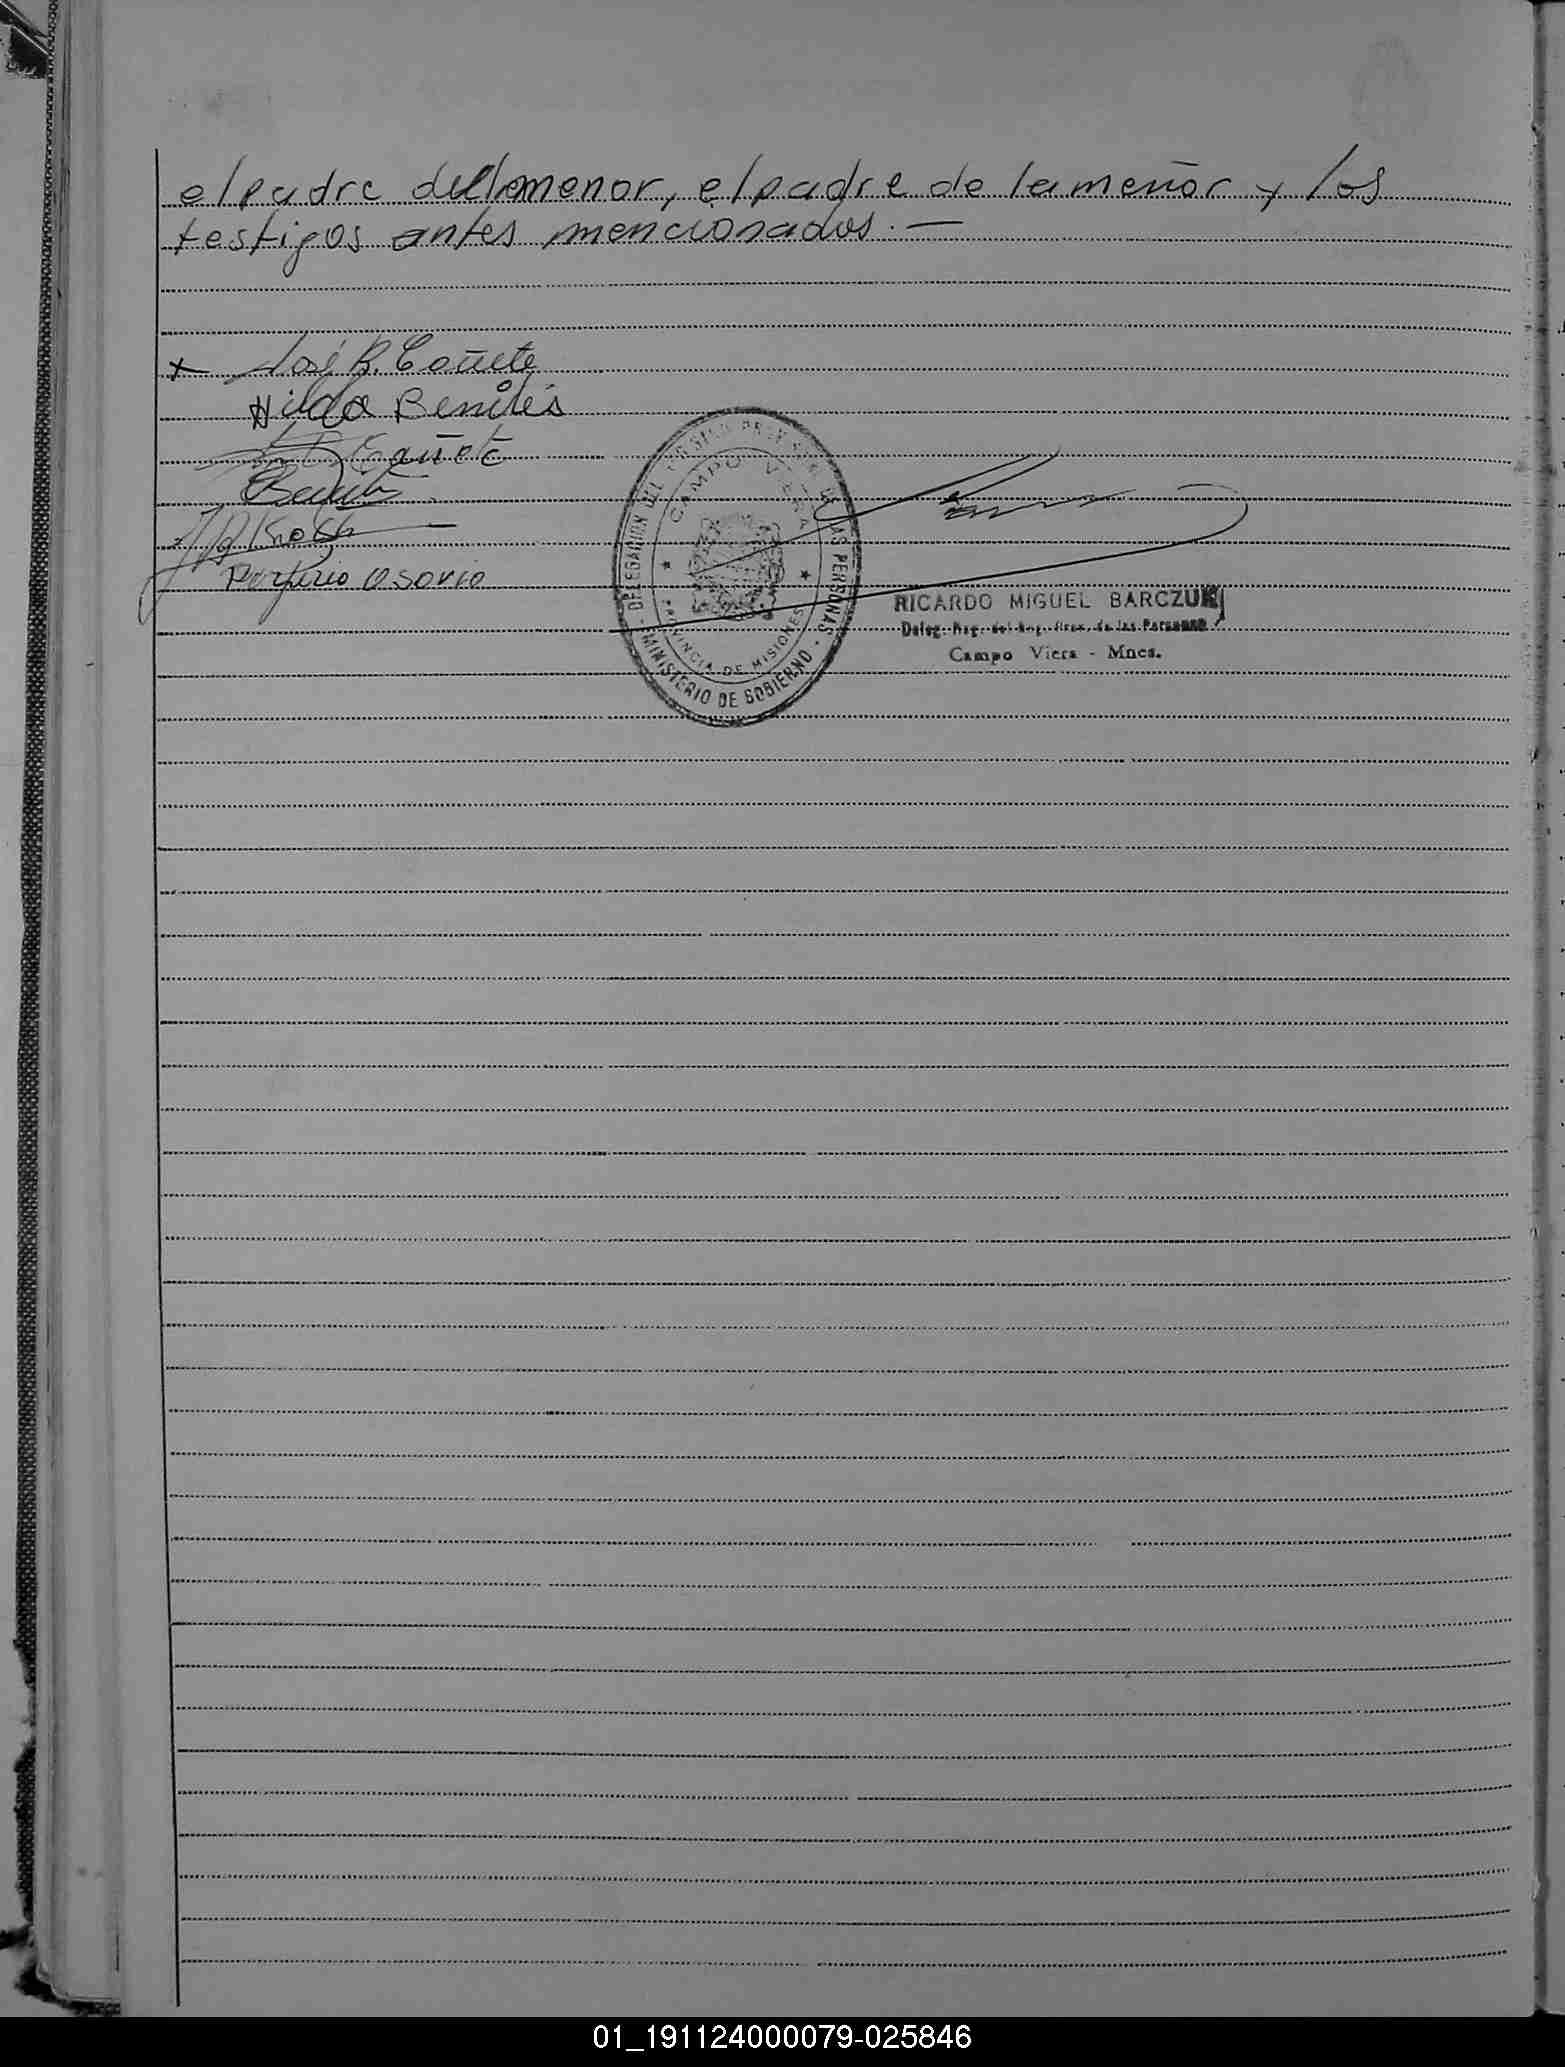 el padre del menor, el padre de la menor y los
testigos antes mencionados. —
José R. Cañete
Hilda Benites
Cañete
Benites
Porfirio Osorio
DELEGACION DEL REGISTRO PROVINCIAL DE LAS PERSONAS
CAMPO VIERA
PROVINCIA DE MISIONES
MINISTERIO DE GOBIERNO
RICARDO MIGUEL BARCZUK
Deleg. Reg. del Reg. Prov. de las Personas
Campo Viera - Mnes.
01_191124000079-025846